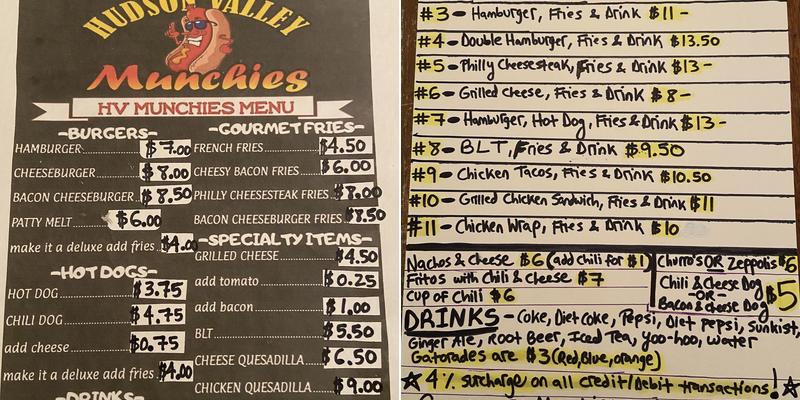 HUDSON VALLEY
Munchies
HV MUNCHIES MENU
-BURGERS-
HAMBURGER $7.00
CHEESEBURGER $8.00
BACON CHEESEBURGER $8.50
PATTY MELT $6.00
make it a deluxe add fries $4.00
-HOT DOGS-
HOT DOG $3.75
CHILI DOG $4.75
add cheese $0.75
make it a deluxe add fries $4.00
-DRINKS-
-GOURMET FRIES-
FRENCH FRIES $4.50
CHEESY BACON FRIES $6.00
PHILLY CHEESESTEAK FRIES $8.00
BACON CHEESEBURGER FRIES $8.50
-SPECIALTY ITEMS-
GRILLED CHEESE $4.50
add tomato $0.25
add bacon $1.00
BLT $5.50
CHEESE QUESADILLA $6.50
CHICKEN QUESADILLA $9.00
#3- Hamburger, Fries & Drink $11-
#4- Double Hamburger, Fries & Drink $13.50
#5- Philly Cheesesteak, Fries & Drink $13-
#6- Grilled Cheese, Fries & Drink $8-
#7- Hamburger, Hot Dog, Fries & Drink $13-
#8- BLT, Fries & Drink $9.50
#9- Chicken Tacos, Fries & Drink $10.50
#10- Grilled Chicken Sandwich, Fries & Drink $11
#11- Chicken Wrap, Fries & Drink $10
Nachos & Cheese $6 (add chili for $1)
Fritos with Chili & Cheese $7
Cup of Chili $6
Churro's OR Zeppolis $6
Chili & Cheese Dog
-OR-
Bacon & Cheese Dog $5
DRINKS - Coke, Diet Coke, Pepsi, Diet pepsi, Sunkist,
Ginger Ale, Root Beer, Iced Tea, Yoo-hoo, Water
Gatorades are $3 (Red, Blue, orange)
☆ 4% surcharge on all credit/debit transactions! ☆